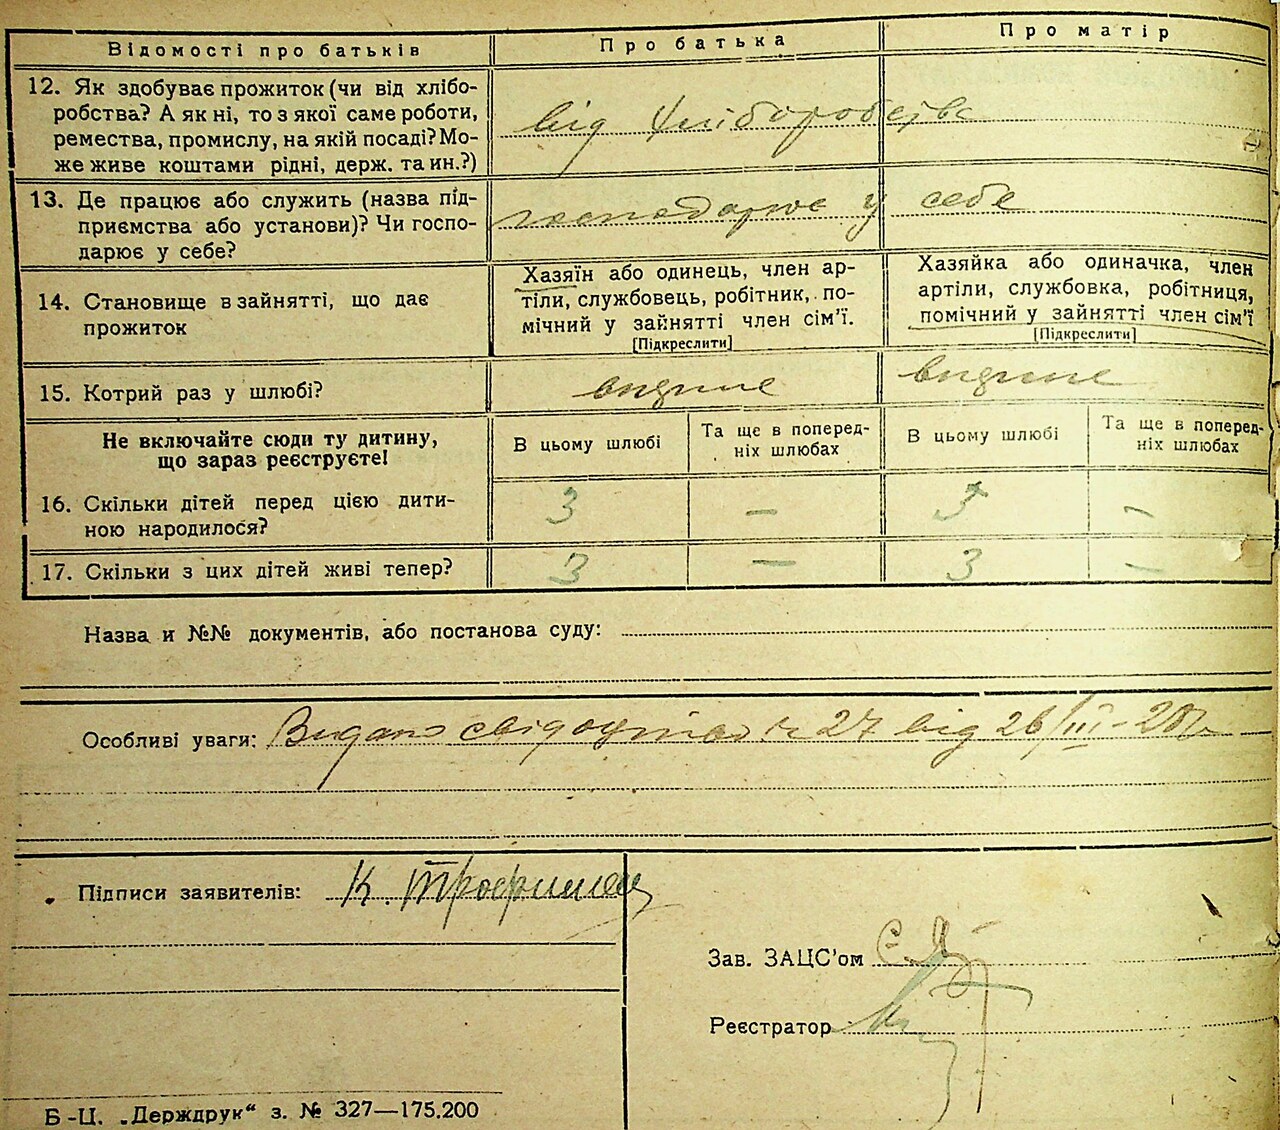 Відомості про батьків
Про батька
Про матір
12. Як здобуває прожиток (чи від хлібо-
робства? А як ні, то з якої саме роботи,
ремества, промислу, на якій посаді? Мо-
же живе коштами рідні, держ. та ин.?)
від хліборобства
13. Де працює або служить (назва під-
приємства або установи)? Чи госпо-
дарює у себе?
господарює у себе
14. Становище в зайнятті, що дає
прожиток
Хазяїн або одинець, член ар-
тіли, службовець, робітник, по-
мічний у зайнятті член сім’ї.
[Підкреслити]
Хазяйка або одиначка, член
артіли, службовка, робітниця,
помічний у зайнятті член сім’ї
[Підкреслити]
15. Котрий раз у шлюбі?
Не включайте сюди ту дитину,
що зараз реєструєте!
В цьому шлюбі
Та ще в поперед-
ніх шлюбах
В цьому шлюбі
Та ще в поперед-
ніх шлюбах
16. Скільки дітей перед цією дити-
ною народилося?
3 — 3 —
17. Скільки з цих дітей живі тепер?
3 — 3 —
Назва и №№ документів, або постанова суду:
Особливі уваги: Видано свідоцтво 27 від 26/III-
Підписи заявителів: К. Трофимец
Зав. ЗАЦС’ом
Реєстратор
Б-Ц. „Держдрук“ з. № 327—175.200